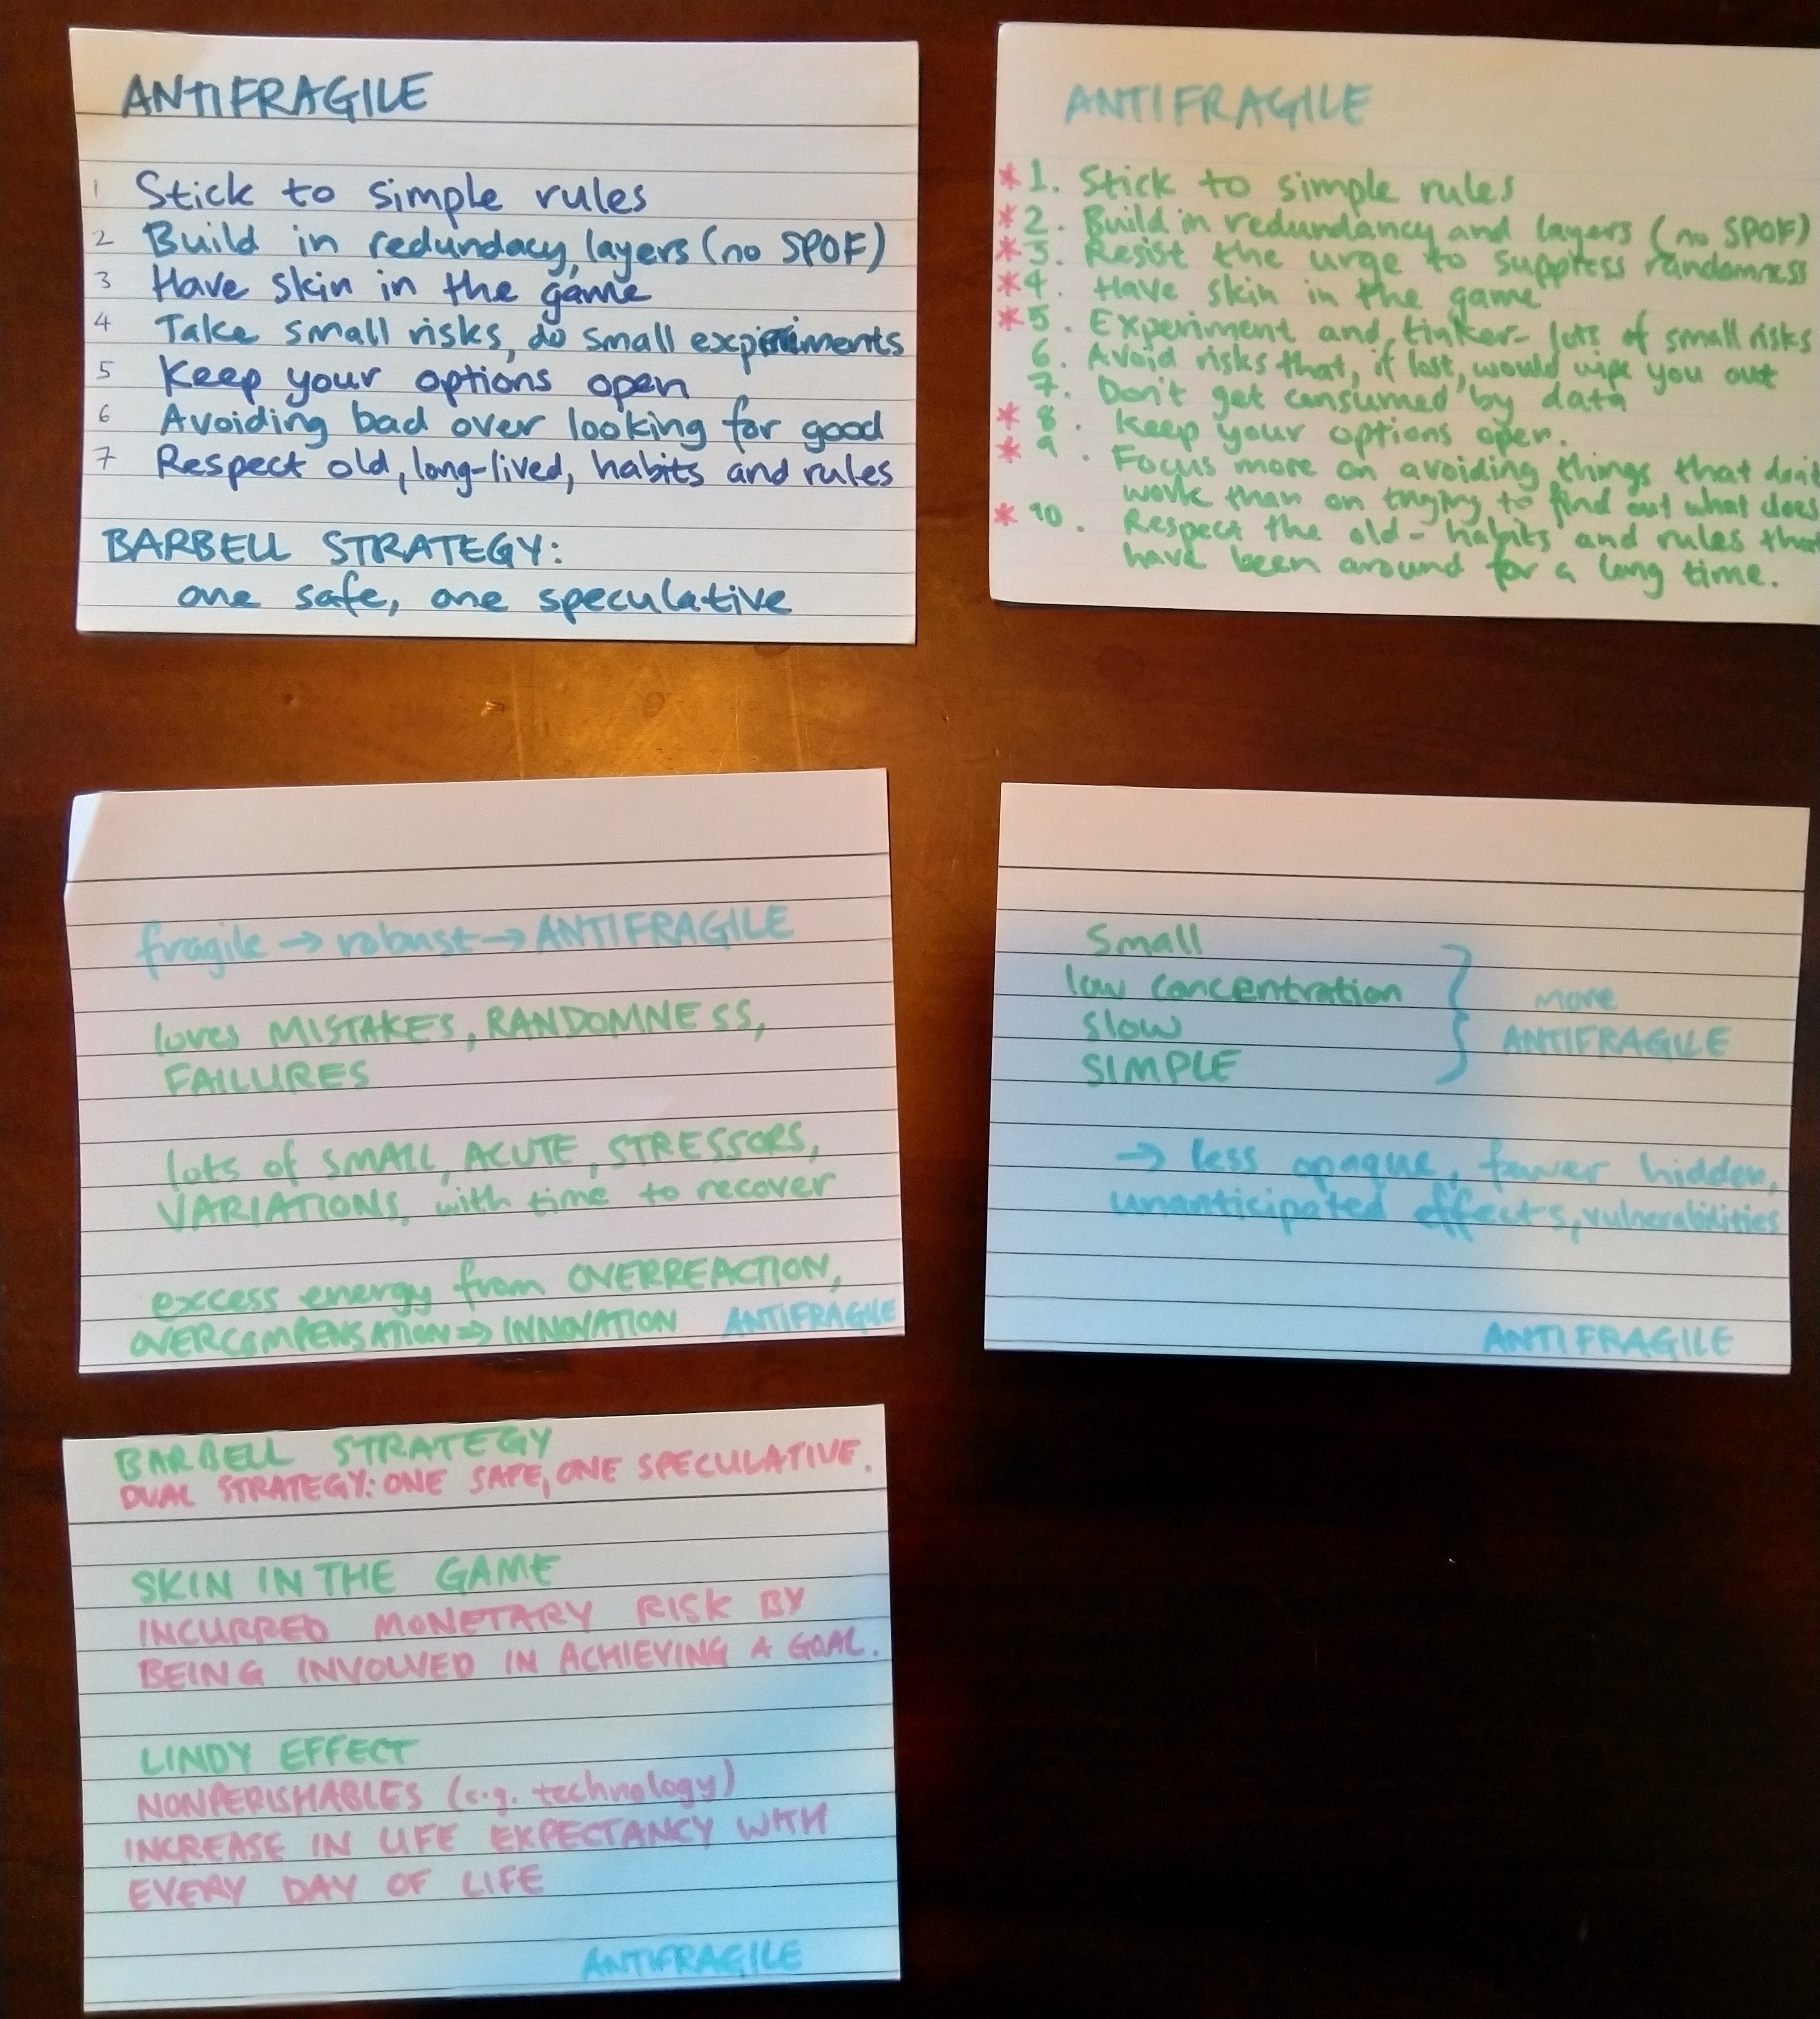 ANTIFRAGILE
1 Stick to simple rules
2 Build in redundacy, layers (no SPOF)
3 Have skin in the game
4 Take small risks, do small experiments
5 Keep your options open
6 Avoiding bad over looking for good
7 Respect old, long-lived, habits and rules
BARBELL STRATEGY:
one safe, one speculative
ANTIFRAGILE
* 1. Stick to simple rules
* 2. Build in redundancy and layers (no SPOF)
* 3. Resist the urge to suppress randomness
* 4. Have skin in the game
* 5. Experiment and tinker - lots of small risks
6. Avoid risks that, if lost, would wipe you out
7. Don't get consumed by data
* 8. Keep your options open.
* 9. Focus more on avoiding things that don't
work than on trying to find out what does
* 10. Respect the old - habits and rules that
have been around for a long time.
fragile → robust → ANTIFRAGILE
loves MISTAKES, RANDOMNESS,
FAILURES
lots of SMALL, ACUTE, STRESSORS,
VARIATIONS, with time to recover
excess energy from OVERREACTION,
OVERCOMPENSATION ⇒ INNOVATION ANTIFRAGILE
Small
low concentration
slow
SIMPLE
more
ANTIFRAGILE
→ less opaque, fewer hidden,
unanticipated effects, vulnerabilities
ANTIFRAGILE
BARBELL STRATEGY
DUAL STRATEGY: ONE SAFE, ONE SPECULATIVE.
SKIN IN THE GAME
INCURRED MONETARY RISK BY
BEING INVOLVED IN ACHIEVING A GOAL.
LINDY EFFECT
NONPERISHABLES (e.g. technology)
INCREASE IN LIFE EXPECTANCY WITH
EVERY DAY OF LIFE
ANTIFRAGILE